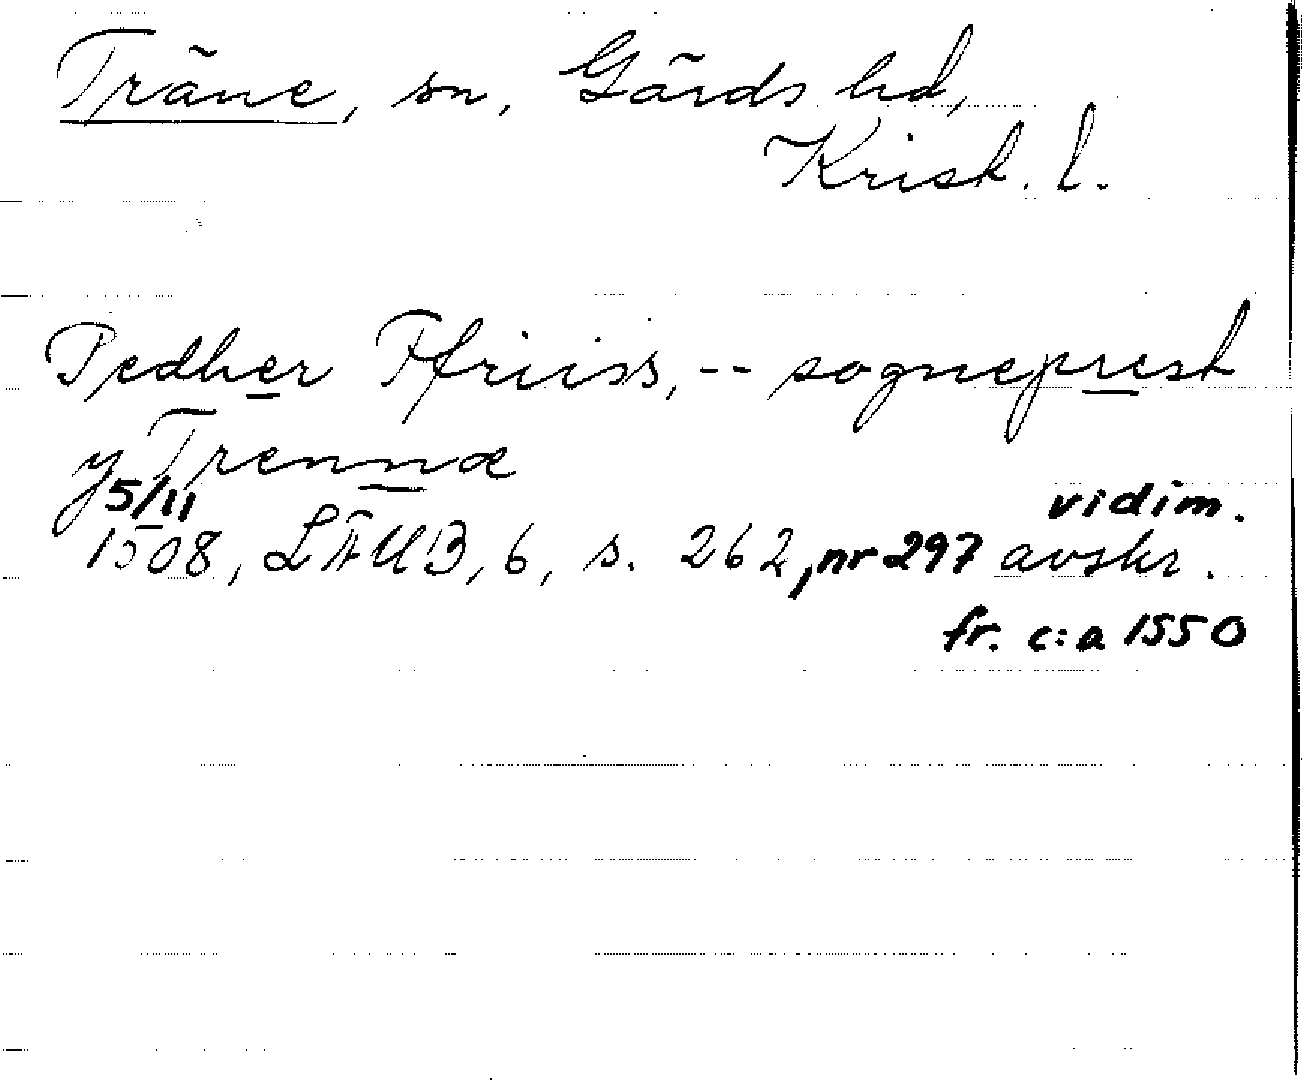 Träne, sn, Gärds hd,
Krist. l.
Pedher Ffriiss, -- sogneprest
y Trennæ
5/11 vidim.
1508, LÄUB, 6, s. 262, nr 297 avskr.
fr. c:a 1550